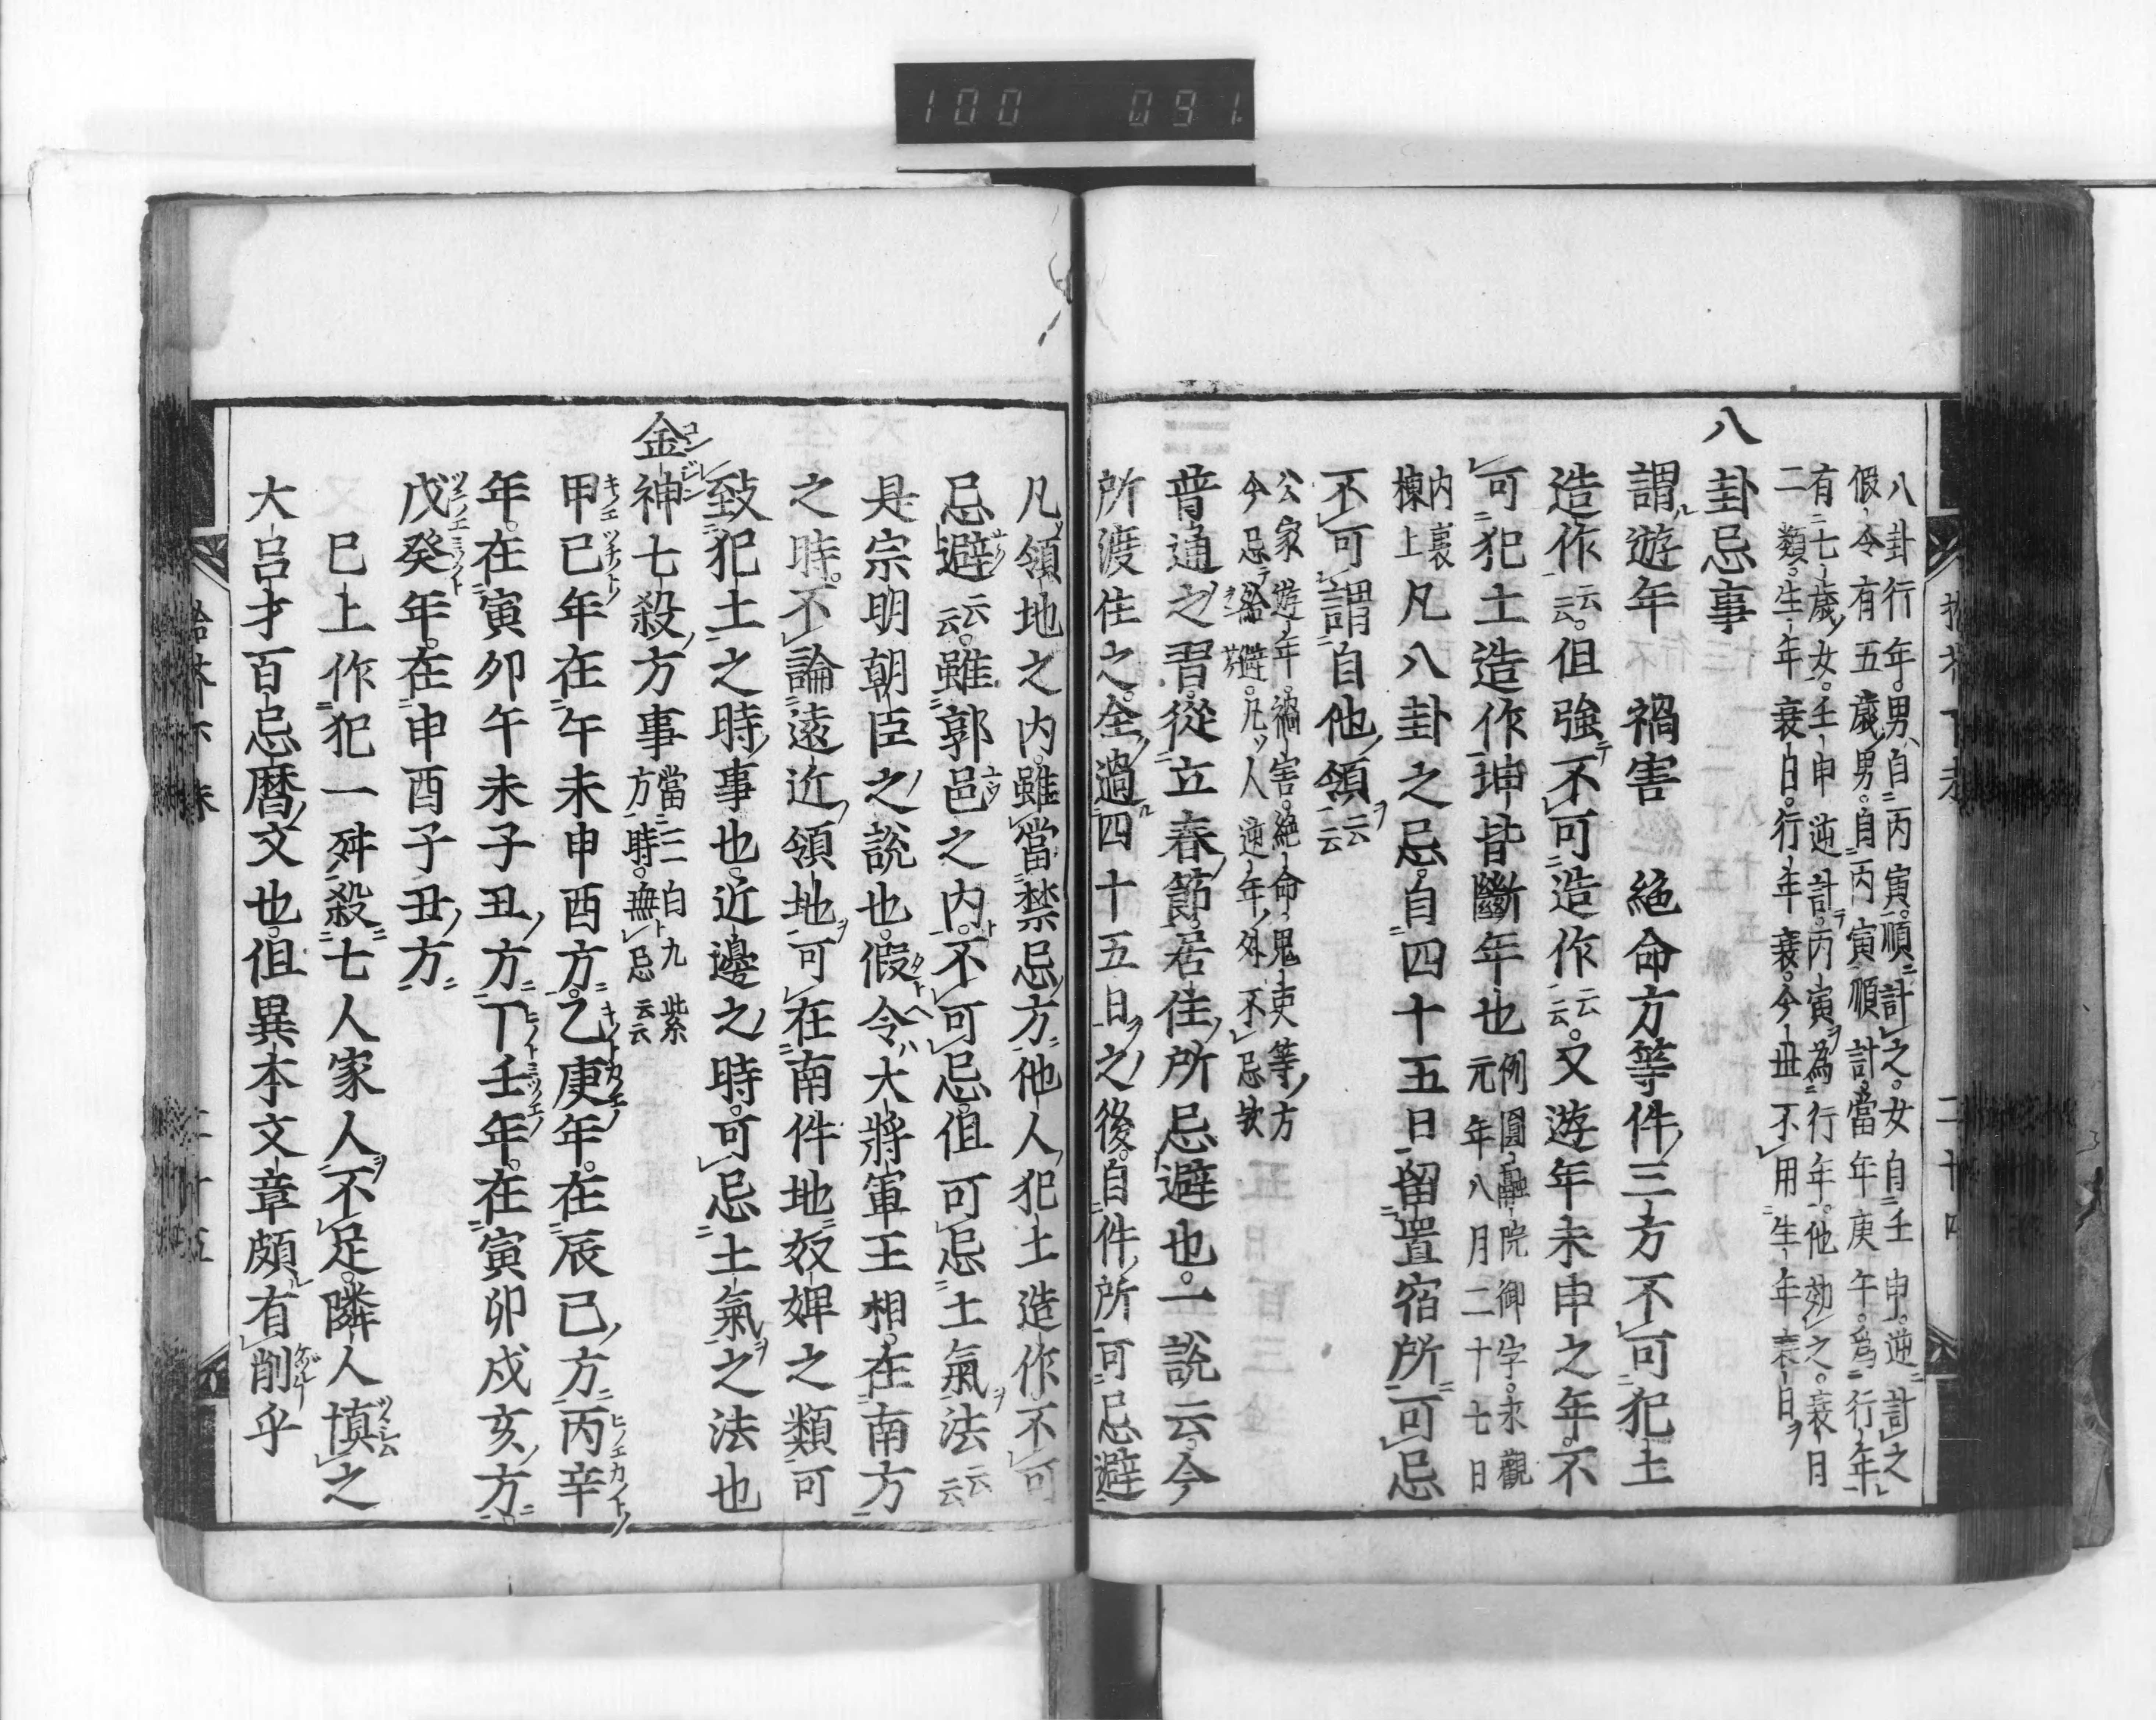 100 091
八卦行年。男自丙寅。順計之。女自壬申。逆計之
假令有五歲男。自丙寅順計。當年庚午。爲行年
有七歲女。壬申逆計。丙寅爲行年。他効之。衰日
二類。生年衰日。行年衰。今世不用生年衰日
八卦忌事
謂遊年 禍害 絕命方等件三方不可犯土
造作云云。但強不可造作云云。又遊年未申之年。不
可犯土造作坤皆斷年也例圓融院御宇。永觀
元年八月二十七日
內裏
棟上凡八卦之忌。自四十五日留置宿所可忌
不可謂自他領云云
公家遊年。禍害。絕命鬼吏等方
今忌給避。凡人逆年外不忌歟
普通之習。從立春節。居住所忌避也。一說云今
所渡住之。全過四十五日之後。自件所可忌避
凡領地之內。雖當禁忌方他人犯土造作不可
忌避云云。雖郭邑之內。不可忌。但可忌土氣法云云
是宗明朝臣之說也。假令大將軍王相。在南方
之時。不論遠近領地可在南件地奴婢之類可
致犯土之時事也。近邊之時。可忌土氣之法也
金神七殺方事當三一白九紫
方時。無忌云云
甲己年在午未申酉方。乙庚年。在辰巳方丙辛
年。在寅卯午未子丑方丁壬年。在寅卯戌亥方
戊癸年。在申酉子丑方
巳上作犯一舛殺七人家人不足。隣人慎之
大呂才百忌曆文也。但異本文章頗有削乎
二十四
二十五